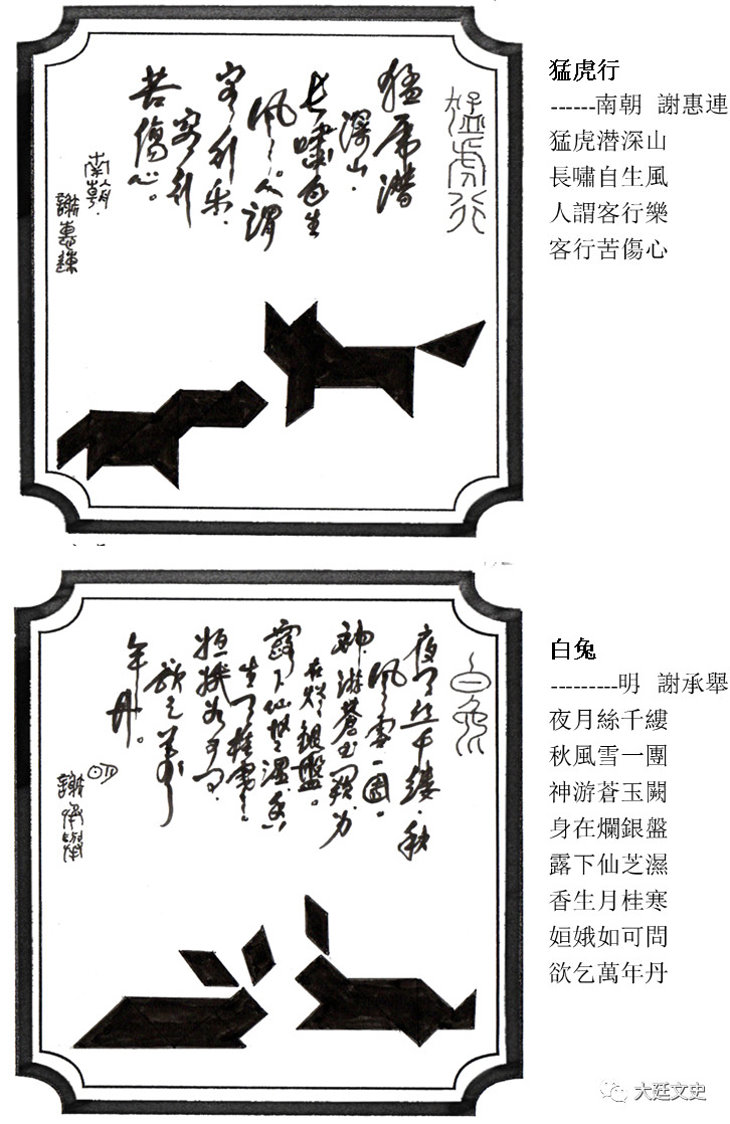 猛虎行
猛虎潜
深山.
長嘯自生
風。人謂
客行樂.
客行
苦傷心。
南朝.
謝惠連
猛虎行
------南朝 謝惠連
猛虎潜深山
長嘯自生風
人謂客行樂
客行苦傷心
白兔
夜月丝千缕.秋
風雪一團。
神游蒼玉闕.身
在爛銀盤。
露下仙芝濕.香
生月桂寒。
姮娥如可問.
欲乞萬
年丹。
明
謝承舉
白兔
---------明 謝承舉
夜月絲千縷
秋風雪一團
神游蒼玉闕
身在爛銀盤
露下仙芝濕
香生月桂寒
姮娥如可問
欲乞萬年丹
大廷文史